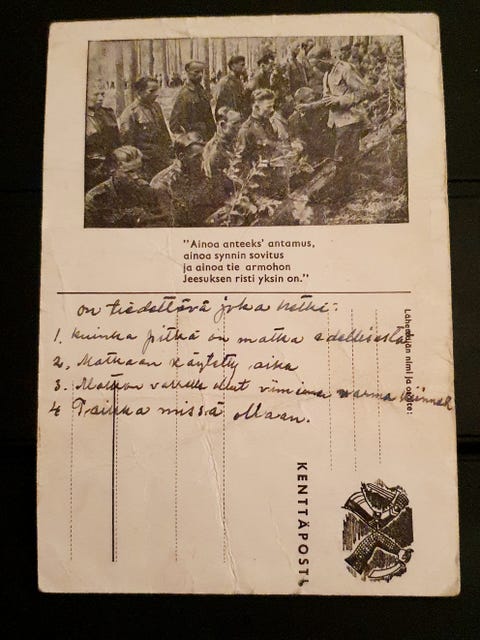 "Ainoa anteeks' antamus,
ainoa synnin sovitus
ja ainoa tie armohon
Jeesuksen risti yksin on."
on tiedettävä joka hetki:
1. kuinka pitkä on matka edellisestä
2. Matkaan käytetty aika
3. Matkan varrella ollut viimeinen varma
4 Paikka missä ollaan.
Lähettäjän nimi ja osoite:
KENTTÄPOSTI